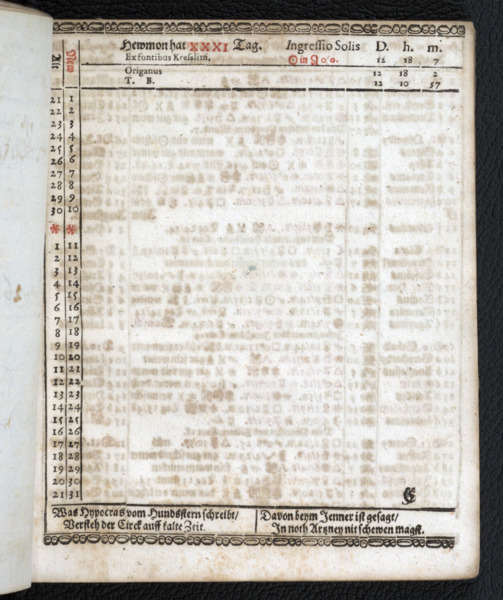 Alt New
Hewmon hat XXXI Tag. Ingressio Solis D. h. m.
Ex fontibus Kreslini. ☉ in ♌ 0°0. 12 18 7
Origanus 12 18 2
T. B. 12 10 57
21 1
22 2
23 3
24 4
25 5
26 6
27 7
28 8
29 9
30 10
* *
1 11
2 12
3 13
4 14
5 15
6 16
7 17
8 18
9 19
10 20
11 21
12 22
13 23
14 24
15 25
16 26
17 27
18 28
19 29
20 30
21 31
Was Hypocras vom Hundsstern schreibt/
Versteh der Circk auff kalte Zeit.
Davon beym Jenner ist gesagt/
In noth Artzney nit schewen magst.